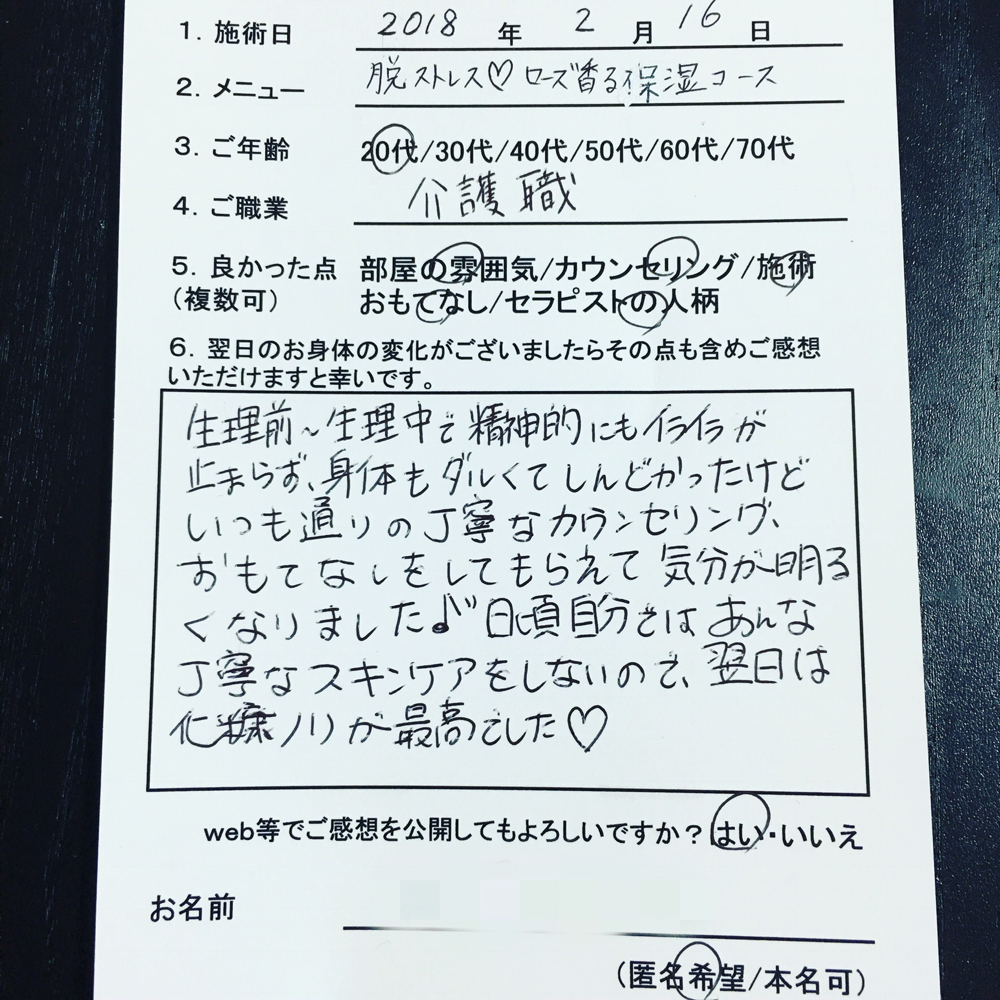 1. 施術日 2018 年 2 月 16 日
2. メニュー 脱ストレス♡ローズ香る保湿コース
3. ご年齢 20代/30代/40代/50代/60代/70代
4. ご職業 介護職
5. 良かった点 部屋の雰囲気/カウンセリング/施術
(複数可) おもてなし/セラピストの人柄
6. 翌日のお身体の変化がございましたらその点も含めご感想
いただけますと幸いです。
生理前~生理中で精神的にもイライラが
止まらず、身体もダルくてしんどかったけど
いつも通りの丁寧なカウンセリング、
おもてなしをしてもらえて気分が明る
くなりました♪日頃自分ではあんな
丁寧なスキンケアをしないので、翌日は
化粧ノリが最高でした♡
web等でご感想を公開してもよろしいですか?はい・いいえ
お名前
(匿名希望/本名可)